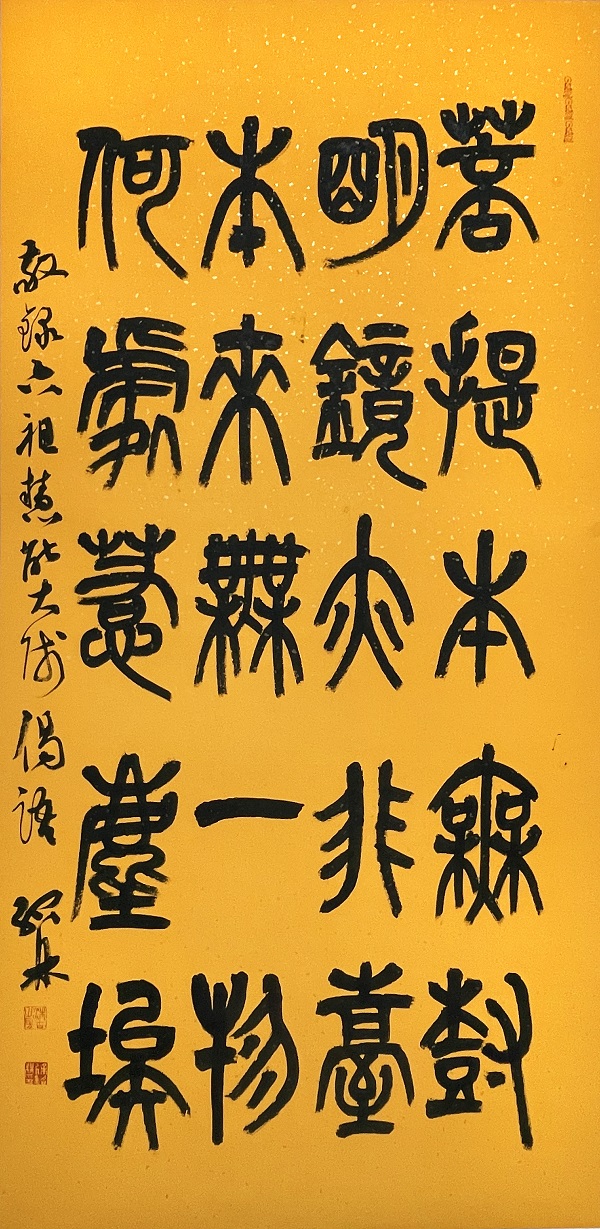 菩提本無樹
明鏡亦非臺
本來無一物
何處惹塵埃
敬録六祖慧能大师偈語